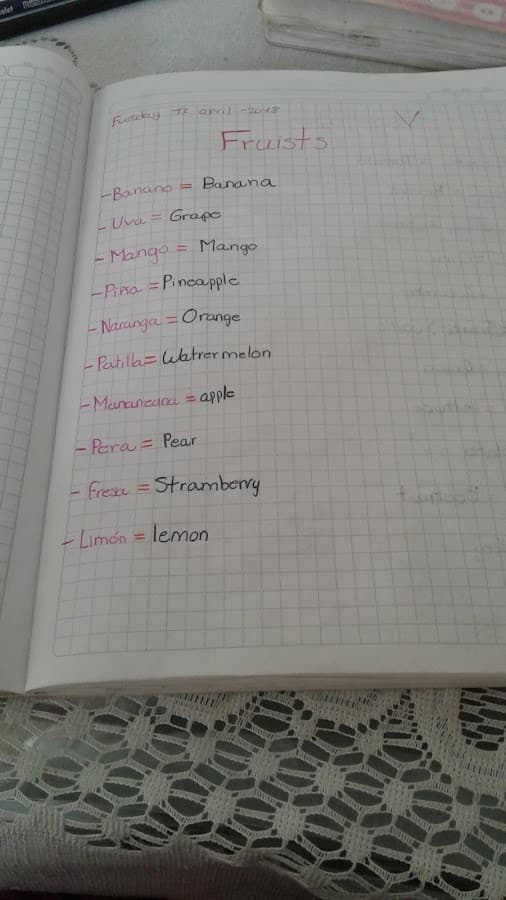 Fuesday 17 april -2018
Fruists
- Banano = Banana
- Uva = Grape
- Mango = Mango
- Piña = Pineapple
- Naranga = Orange
- Patilla = Watrermelon
- Mananeana = apple
- Pera = Pear
- Fresa = Stramberry
- Limón = lemon